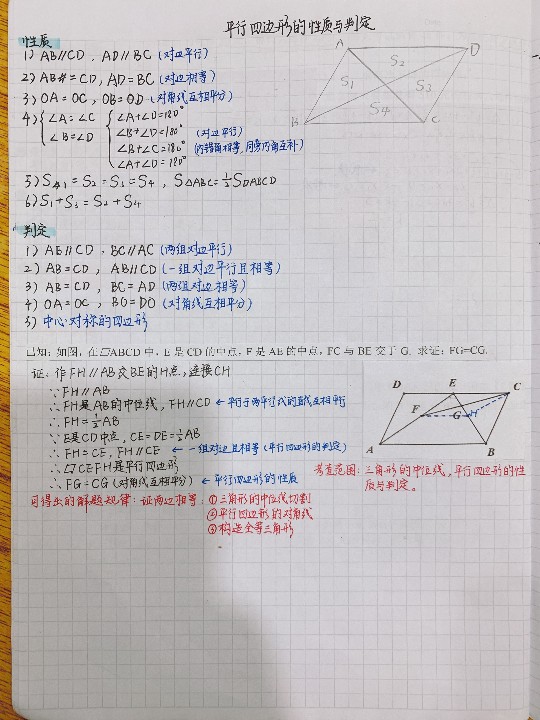 平行四边形的性质与判定
性质
1) AB∥CD , AD∥BC (对边平行)
2) AB = CD, AD=BC (对边相等)
3) OA=OC, OB=OD (对角线互相平分)
4) ∠A=∠C ∠A+∠D=180°
∠B=∠D ∠B+∠D=180° (对边平行)
∠B+∠C=180° (内错角相等,同旁内角互补)
∠A+∠D=180°
5) S△1=S2=S3=S4 , S△ABC=½S□ABCD
6) S1+S3=S2+S4
A D
S2
S1 S3
S4
B C
判定
1) AB∥CD , BC∥AC (两组对边平行)
2) AB=CD , AB∥CD (一组对边平行且相等)
3) AB=CD, BC=AD (两组对边相等)
4) OA=OC, BO=DO (对角线互相平分)
5) 中心对称的四边形
已知:如图,在□ABCD中,E是CD的中点,F是AE的中点,FC与BE交于G. 求证:FG=CG.
证:作FH∥AB交BE的H点,连接CH
∵FH∥AB
∴FH是AB的中位线,FH∥CD ←平行于两平行线的直线互相平行
∴FH=½AB
∵E是CD中点,CE=DE=½AB
∴FH=CE, FH∥CE ←一组对边且相等(平行四边形的判定)
∴□CEFH是平行四边形
∴FG=CG(对角线互相平分) ←平行四边形的性质
D E C
F G H
A B
考查范围:三角形的中位线,平行四边形的性
质与判定。
可得出的解题规律:证两边相等:①三角形的中位线切割
②平行四边形的对角线
③构造全等三角形